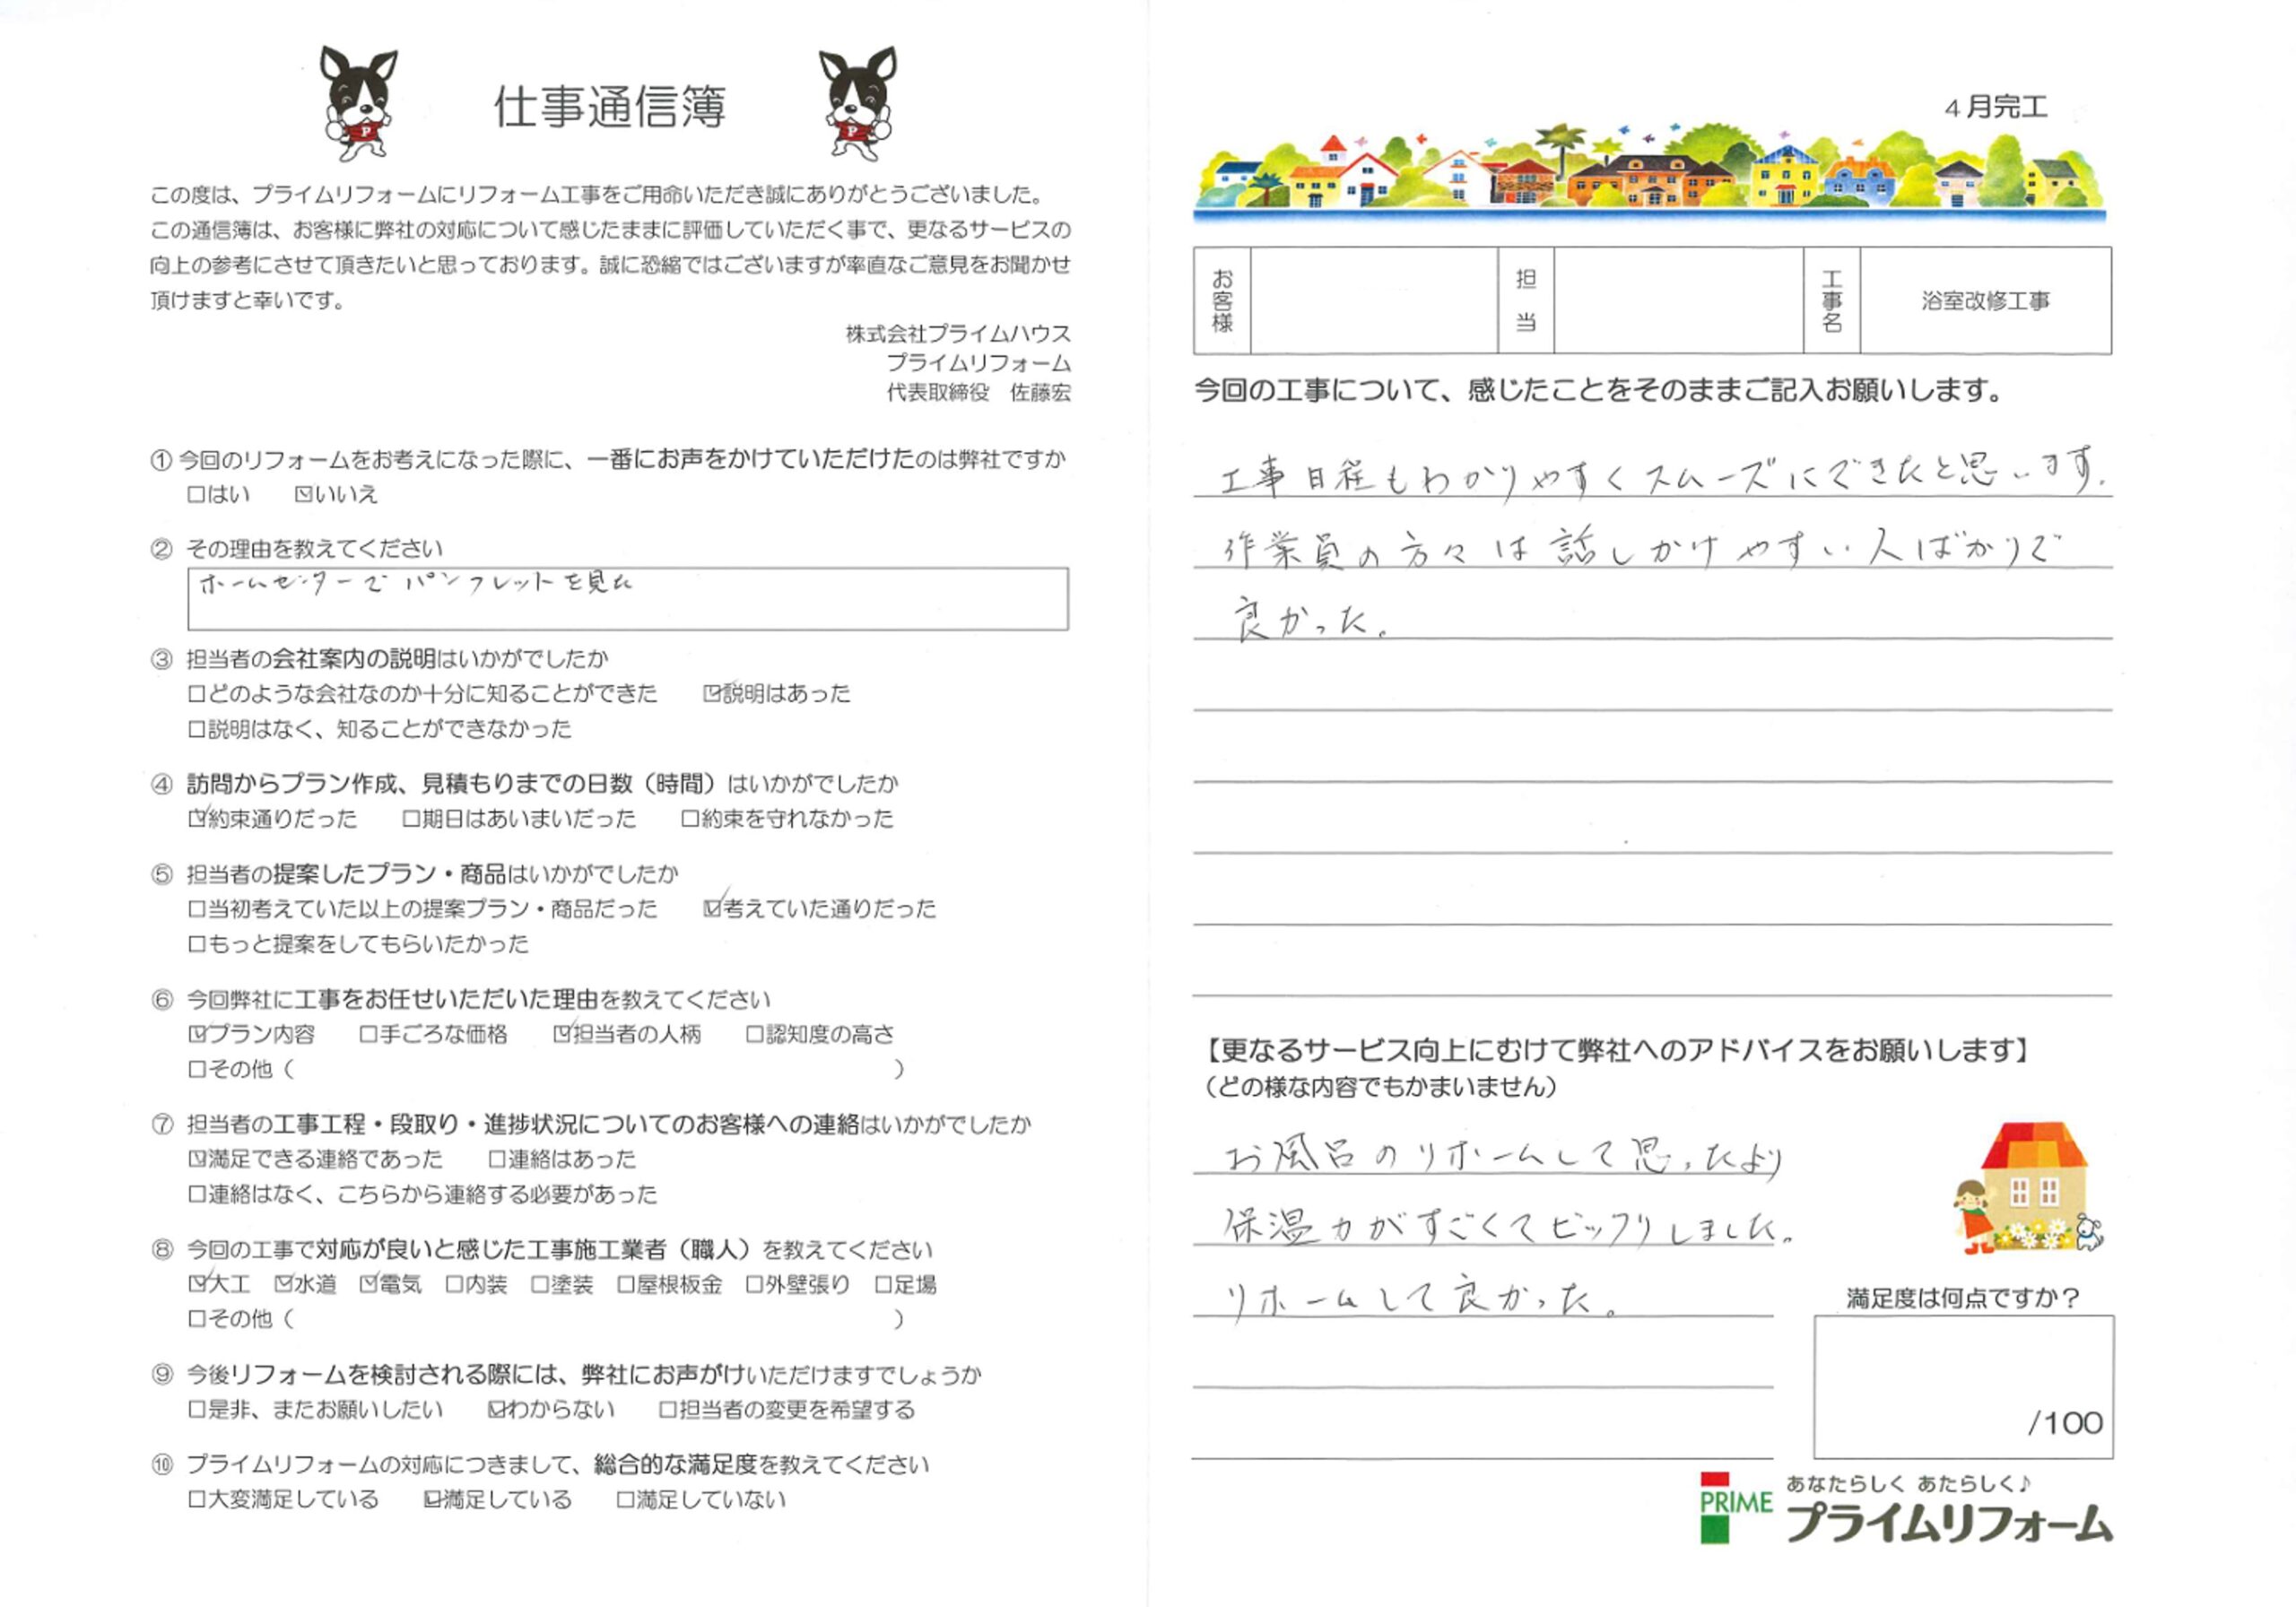 仕事通信簿
この度は、プライムリフォームにリフォーム工事をご用命いただき誠にありがとうございました。
この通信簿は、お客様に弊社の対応について感じたままに評価していただく事で、更なるサービスの
向上の参考にさせて頂きたいと思っております。誠に恐縮ではございますが率直なご意見をお聞かせ
頂けますと幸いです。
株式会社プライムハウス
プライムリフォーム
代表取締役 佐藤宏
① 今回のリフォームをお考えになった際に、一番にお声をかけていただけたのは弊社ですか
□はい ☑いいえ
② その理由を教えてください
ホームセンターで パンフレットを見た
③ 担当者の会社案内の説明はいかがでしたか
□どのような会社なのか十分に知ることができた ☑説明はあった
□説明はなく、知ることができなかった
④ 訪問からプラン作成、見積もりまでの日数（時間）はいかがでしたか
☑約束通りだった □期日はあいまいだった □約束を守れなかった
⑤ 担当者の提案したプラン・商品はいかがでしたか
□当初考えていた以上の提案プラン・商品だった ☑考えていた通りだった
□もっと提案をしてもらいたかった
⑥ 今回弊社に工事をお任せいただいた理由を教えてください
☑プラン内容 □手ごろな価格 ☑担当者の人柄 □認知度の高さ
□その他（ ）
⑦ 担当者の工事工程・段取り・進捗状況についてのお客様への連絡はいかがでしたか
☑満足できる連絡であった □連絡はあった
□連絡はなく、こちらから連絡する必要があった
⑧ 今回の工事で対応が良いと感じた工事施工業者（職人）を教えてください
☑大工 ☑水道 ☑電気 □内装 □塗装 □屋根板金 □外壁張り □足場
□その他（ ）
⑨ 今後リフォームを検討される際には、弊社にお声がけいただけますでしょうか
□是非、またお願いしたい ☑わからない □担当者の変更を希望する
⑩ プライムリフォームの対応につきまして、総合的な満足度を教えてください
□大変満足している ☑満足している □満足していない
4月完工
お客様 担当 工事名 浴室改修工事
今回の工事について、感じたことをそのままご記入お願いします。
工事日程もわかりやすくスムーズにできたと思います。
作業員の方々は話しかけやすい人ばかりで
良かった。
【更なるサービス向上にむけて弊社へのアドバイスをお願いします】
（どの様な内容でもかまいません）
お風呂のリホームして思ったより
保温力がすごくてビックリしました。
リホームして良かった。
満足度は何点ですか？
/100
PRIME
あなたらしく あたらしく♪
プライムリフォーム